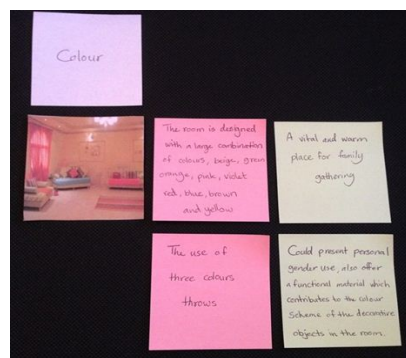 Colour
The room is designed
with a large combination
of colours, beige, green
orange, pink, violet
red, blue, brown
and yellow
A vital and warm
place for family
gathering
The use of
three colours
throws
Could present personal
gender use, also offer
a functional material which
contributes to the colour
Scheme of the decorative
objects in the room.